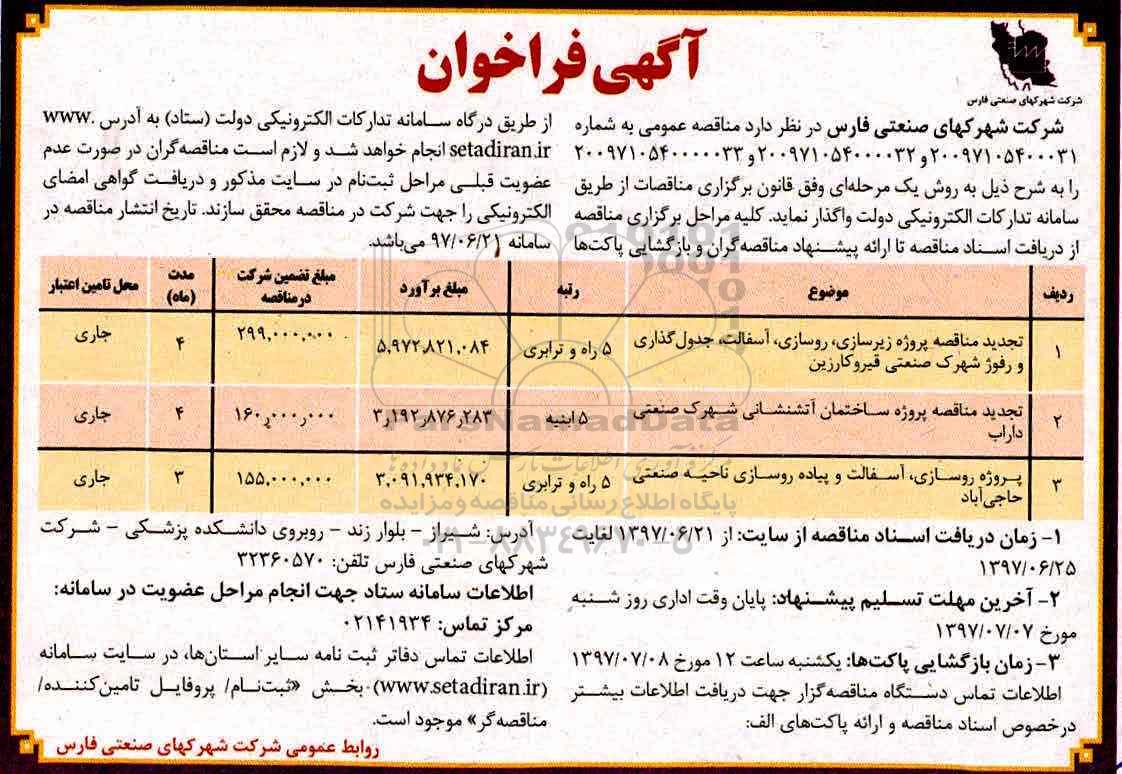 شرکت شهرکهای صنعتی فارس
آگهی فراخوان
شرکت شهرکهای صنعتی فارس در نظر دارد مناقصه عمومی به شماره
۲۰۰۹۷۱۰۵۴۰۰۰۳۱ و ۲۰۰۹۷۱۰۵۴۰۰۰۰۳۲ و ۲۰۰۹۷۱۰۵۴۰۰۰۰۰۳۳
را به شرح ذیل به روش یک مرحله‌ای وفق قانون برگزاری مناقصات از طریق
سامانه تدارکات الکترونیکی دولت واگذار نماید. کلیه مراحل برگزاری مناقصه
از دریافت اسناد مناقصه تا ارائه پیشنهاد مناقصه‌گران و بازگشایی پاکت‌ها
از طریق درگاه سامانه تدارکات الکترونیکی دولت (ستاد) به آدرس www.
setadiran.ir انجام خواهد شد و لازم است مناقصه‌گران در صورت عدم
عضویت قبلی مراحل ثبت‌نام در سایت مذکور و دریافت گواهی امضای
الکترونیکی را جهت شرکت در مناقصه محقق سازند. تاریخ انتشار مناقصه در
سامانه ۹۷/۰۶/۲۱ می‌باشد.
ردیف موضوع رتبه مبلغ برآورد مبلغ تضمین شرکت درمناقصه مدت (ماه) محل تامین اعتبار
۱ تجدید مناقصه پروژه زیرسازی، روسازی، آسفالت، جدول‌گذاری ۵ راه و ترابری ۵,۹۷۲,۸۲۱,۰۸۴ ۲۹۹,۰۰۰,۰۰۰ ۴ جاری
و رفوژ شهرک صنعتی قیروکارزین
۲ تجدید مناقصه پروژه ساختمان آتشنشانی شهرک صنعتی ۵ ابنیه ۳,۱۹۲,۸۷۶,۲۸۳ ۱۶۰,۰۰۰,۰۰۰ ۴ جاری
داراب
۳ پروژه روسازی، آسفالت و پیاده روسازی ناحیه صنعتی ۵ راه و ترابری ۳,۰۹۱,۹۳۴,۱۷۰ ۱۵۵,۰۰۰,۰۰۰ ۳ جاری
حاجی‌آباد
ParsNamadData
پایگاه اطلاع رسانی مناقصه و مزایده
۰۲۱-۸۸۳۴۹۶۷۰-۵
۱- زمان دریافت اسناد مناقصه از سایت: از ۱۳۹۷/۰۶/۲۱ لغایت
۱۳۹۷/۰۶/۲۵
۲- آخرین مهلت تسلیم پیشنهاد: پایان وقت اداری روز شنبه
مورخ ۱۳۹۷/۰۷/۰۷
۳- زمان بازگشایی پاکت‌ها: یکشنبه ساعت ۱۲ مورخ ۱۳۹۷/۰۷/۰۸
اطلاعات تماس دستگاه مناقصه‌گزار جهت دریافت اطلاعات بیشتر
درخصوص اسناد مناقصه و ارائه پاکت‌های الف:
آدرس: شیراز - بلوار زند - روبروی دانشکده پزشکی - شرکت
شهرکهای صنعتی فارس تلفن: ۳۲۳۶۰۵۷۰
اطلاعات سامانه ستاد جهت انجام مراحل عضویت در سامانه:
مرکز تماس: ۰۲۱۴۱۹۳۴
اطلاعات تماس دفاتر ثبت نامه سایر استان‌ها، در سایت سامانه
(www.setadiran.ir) بخش «ثبت‌نام/ پروفایل تامین‌کننده/
مناقصه‌گر» موجود است.
روابط عمومی شرکت شهرکهای صنعتی فارس